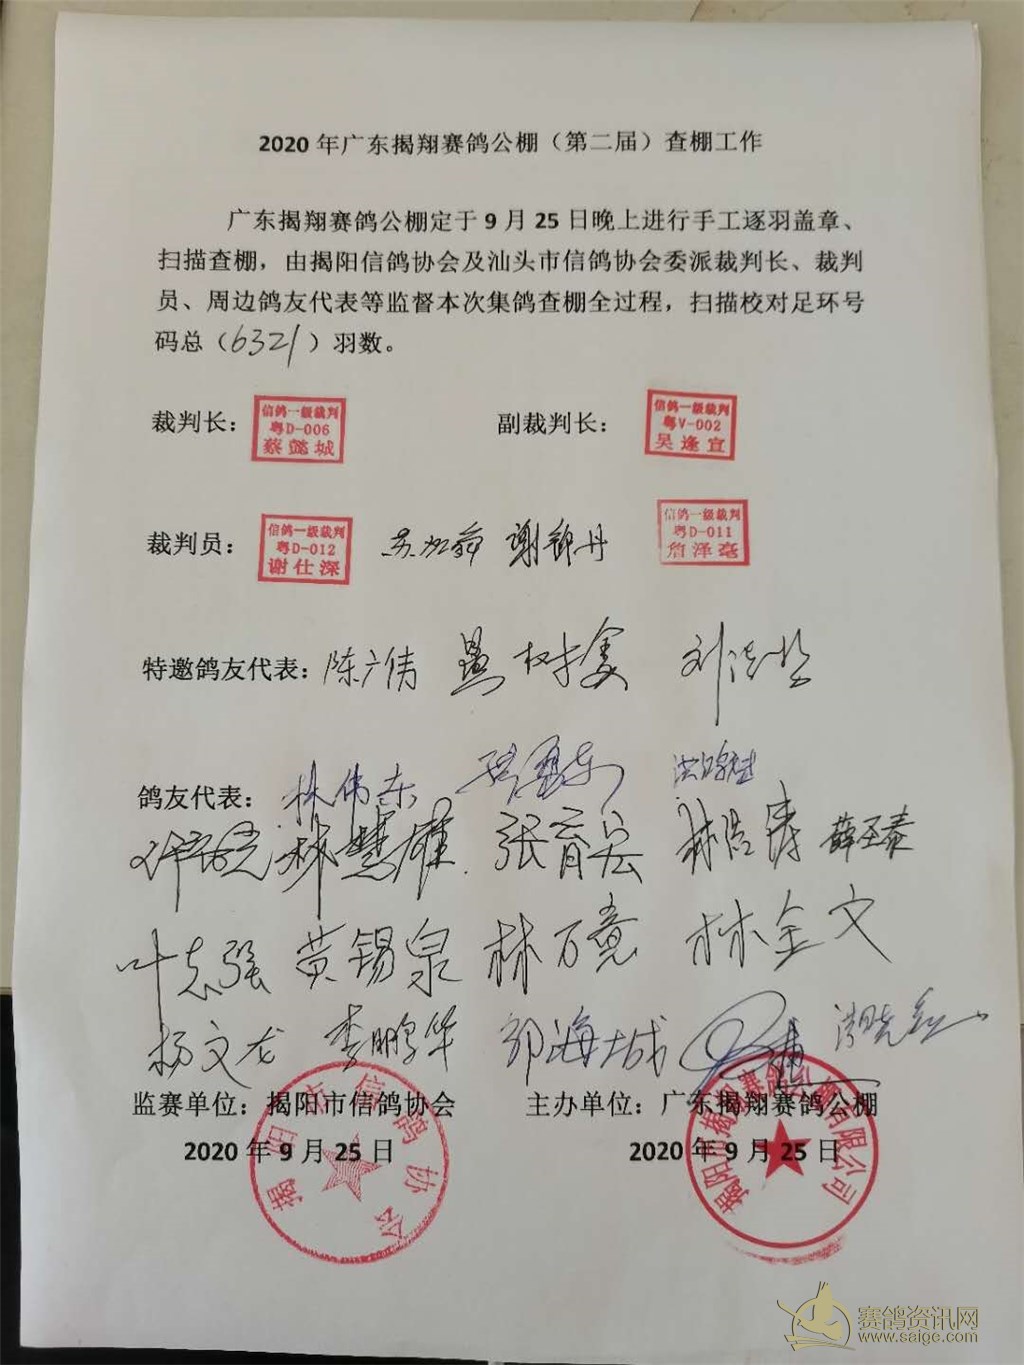 2020年广东揭翔赛鸽公棚（第二届）查棚工作
广东揭翔赛鸽公棚定于9月25日晚上进行手工逐羽盖章、
扫描查棚，由揭阳信鸽协会及汕头市信鸽协会委派裁判长、裁判
员、周边鸽友代表等监督本次集鸽查棚全过程，扫描校对足环号
码总（6321）羽数。
裁判长：
信鸽一级裁判
粤D-006
蔡懿城
副裁判长：
信鸽一级裁判
粤V-002
吴逢宣
裁判员：
信鸽一级裁判
粤D-012
谢仕深
谢锦丹
信鸽一级裁判
粤D-011
詹泽亳
特邀鸽友代表：陈广伟
鸽友代表：林伟东
林慧雄 张育宏 林浩涛
叶志强 黄锡泉 林万意 林金文
杨文龙 李鹏华 邹海城
监赛单位：揭阳市信鸽协会 主办单位：广东揭翔赛鸽公棚
2020年9月25日 2020年9月25日
揭阳市信鸽协会
赛鸽资讯网
www.saige.com